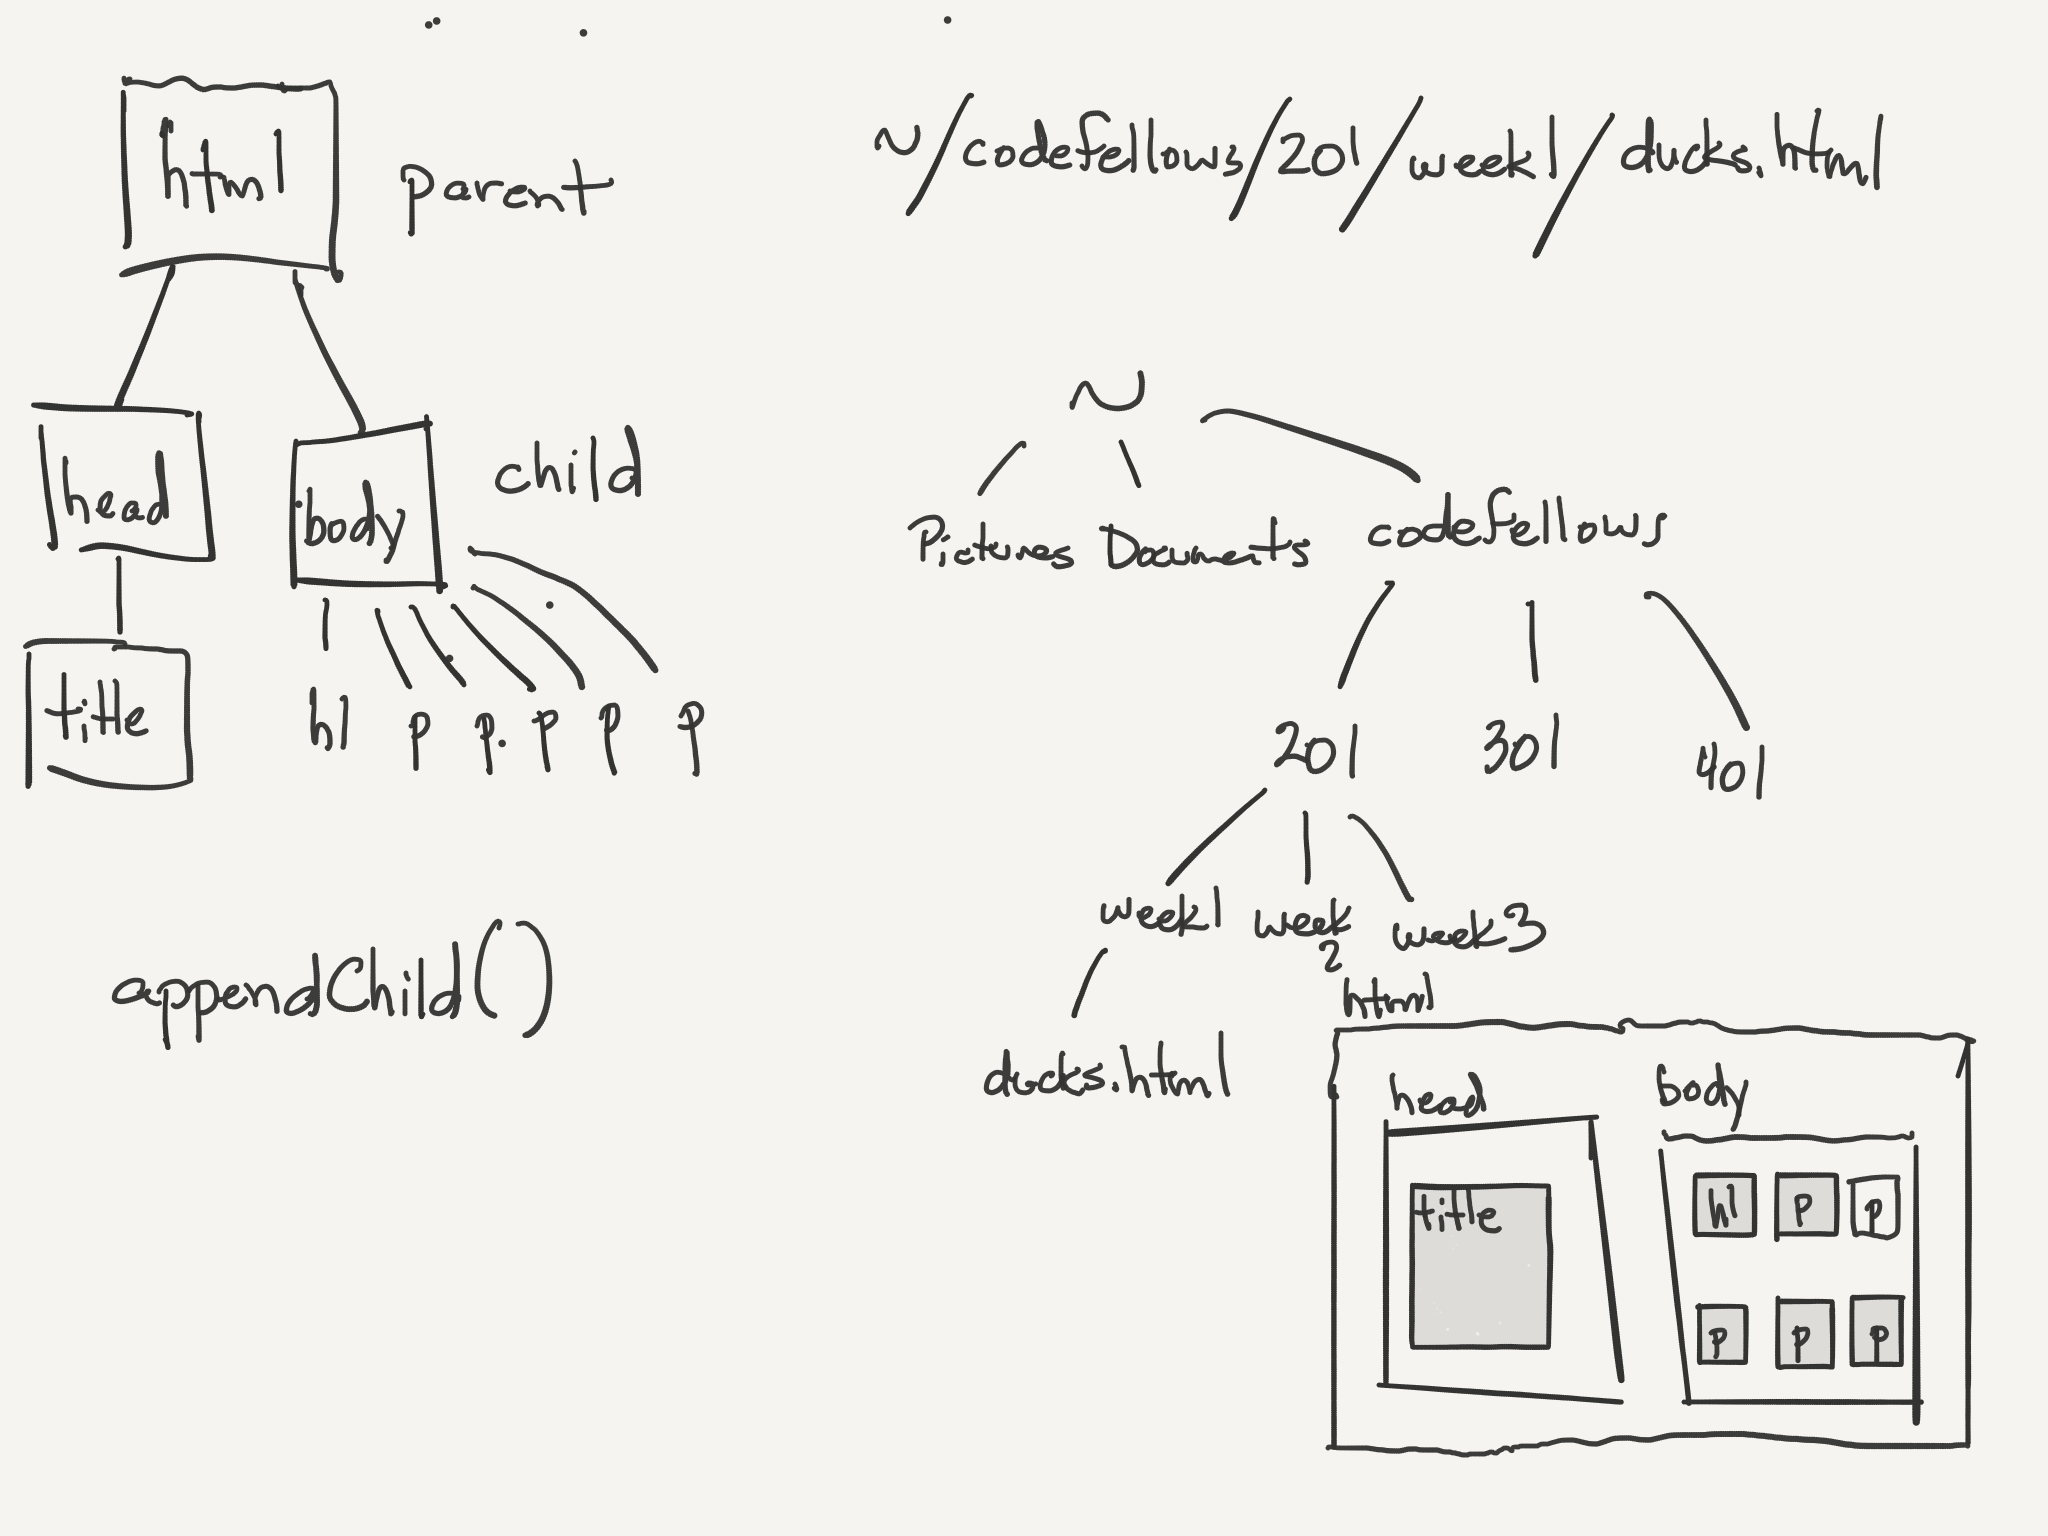 html
parent
head
body
child
title
h1 p p. p p p
appendChild()
~/codefellows/201/week1/ducks.html
~
Pictures Documents codefellows
201 301 401
week1 week 2 week3
ducks.html
html
head
body
title
h1 p p
p p p